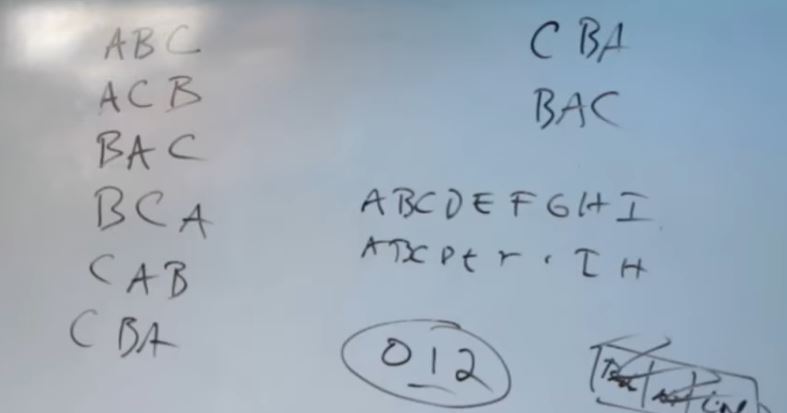 ABC
ACB
BAC
BCA
CAB
CBA
CBA
BAC
ABCDEFGHI
IH
012